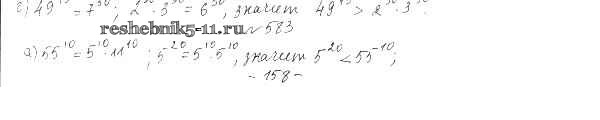 49¹⁵ = 7³⁰ ; 2³⁰ · 3³⁰ = 6³⁰, значит 49¹⁵ > 2³⁰ · 3³⁰.
reshebnik5-11.ru № 583
а) 55¹⁰ = 5¹⁰ · 11¹⁰ ; 5⁻²⁰ = 5¹⁰ · 5¹⁰, значит 5⁻²⁰ < 55⁻¹⁰ ;
- 158 -